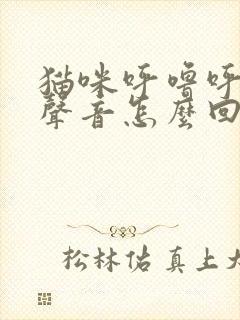 猫咪呼噜呼
聲音怎麼回
松林佑真上大